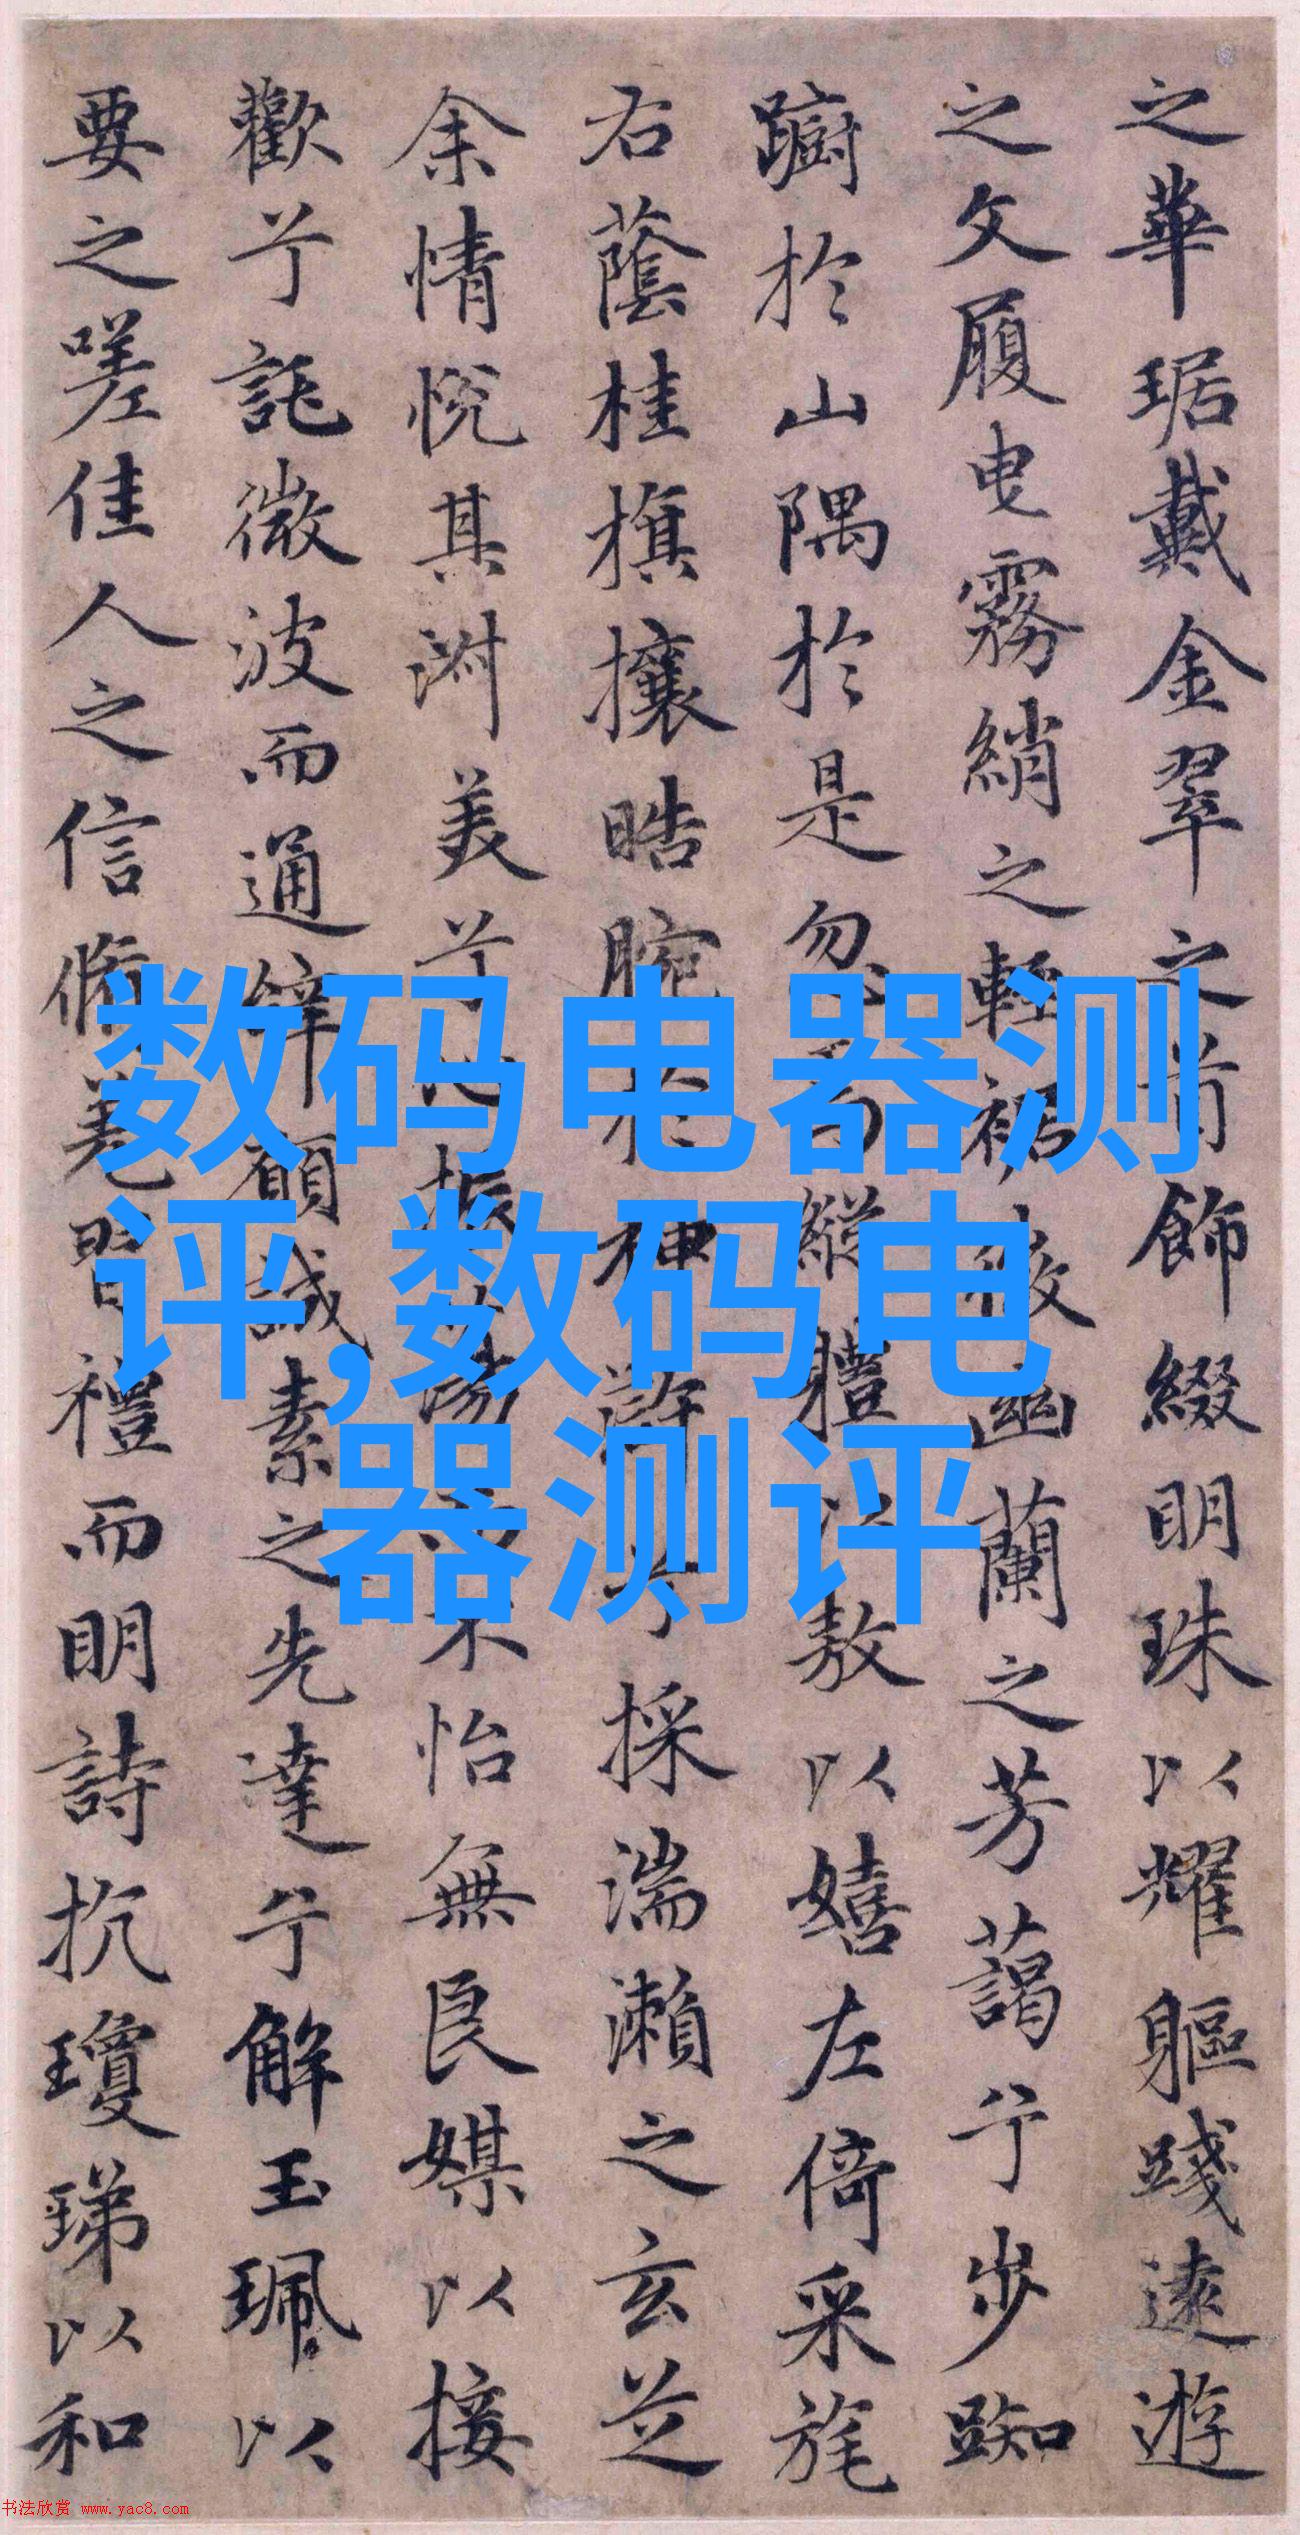 之華琚戴金翠之首飾綴明珠以耀軀踐遠遊
之文履曳霧綃之輕裾微幽蘭之芳藹兮步踟
躕於山隅於是忽焉縱體以敖以嬉左倚采旄
右蔭桂旗攘晧腕於神滸兮採湍瀨之玄芝
余情悅其淑美兮心振蕩而不怡無良媒以接
歡兮託微波而通辭願誠素之先達兮解玉珮以
要之嗟佳人之信脩羌習禮而明詩抗瓊珶以和
数码电器测
评,数码电
器测评
书法欣赏 www.yac8.com